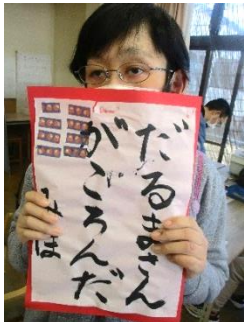 だるまさん
がころんだ
みほ